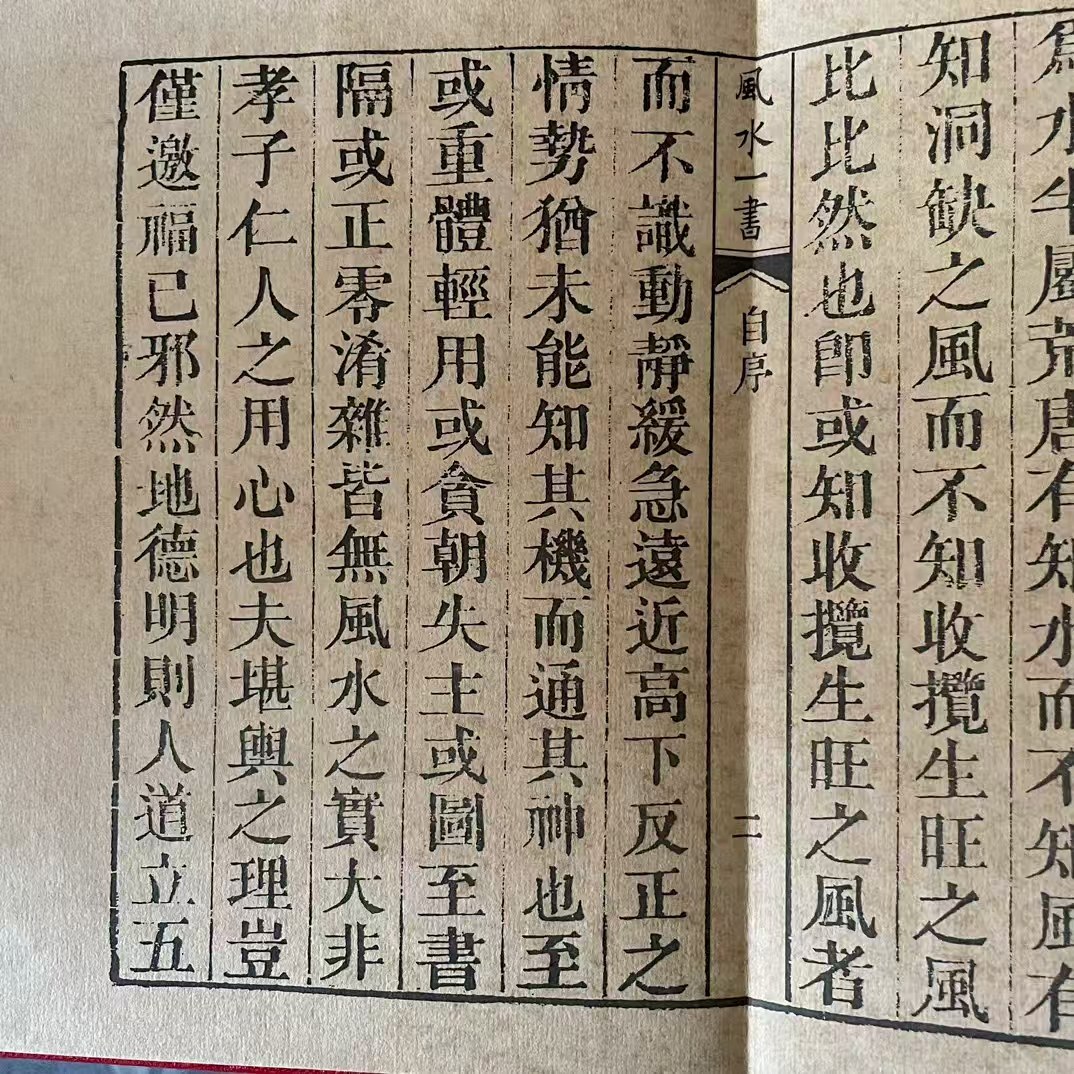 水牛屬荒唐有知水而不知風有
知洞缺之風而不知收攬生旺之風
比比然也卽或知收攬生旺之風者
風水一書 自序 二
而不識動靜緩急遠近高下反正之
情勢猶未能知其機而通其神也至
或重體輕用或貪朝失主或圖至書
隔或正零淆雜皆無風水之實大非
孝子仁人之用心也夫堪輿之理豈
僅邀福已邪然地德明則人道立五